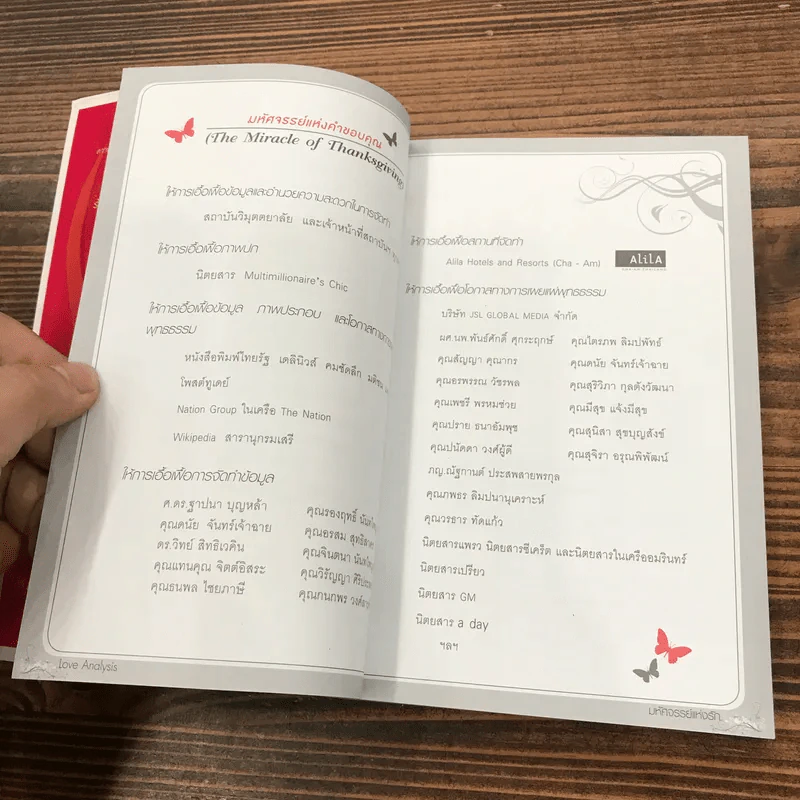 มหัศจรรย์แห่งคำขอบคุณ
(The Miracle of Thanksgiving)
ให้การเอื้อเฟื้อข้อมูลและอำนวยความสะดวกในการจัดทำ
สถาบันวิมุตตยาลัย และเจ้าหน้าที่สถาบันฯ
ให้การเอื้อเฟื้อภาพปก
นิตยสาร Multimillionaire's Chic
ให้การเอื้อเฟื้อข้อมูล ภาพประกอบ และโอกาสทางการ
พุทธธรรม
หนังสือพิมพ์ไทยรัฐ เดลินิวส์ คมชัดลึก มติชน
โพสต์ทูเดย์
Nation Group ในเครือ The Nation
Wikipedia สารานุกรมเสรี
ให้การเอื้อเฟื้อการจัดทำข้อมูล
ศ.ดร.ฐาปนา บุญหล้า
คุณดนัย จันทร์เจ้าฉาย
ดร.วิทย์ สิทธิเวคิน
คุณแทนคุณ จิตต์อิสระ
คุณธนพล ไชยภาษี
คุณรองฤทธิ์
คุณอรสม
คุณจินตนา
คุณวิรัญญา
คุณกนกพร
Love Analysis
ให้การเอื้อเฟื้อสถานที่จัดทำ
Alila Hotels and Resorts (Cha - Am)
ALiLA
ให้การเอื้อเฟื้อโอกาสทางการเผยแผ่พุทธธรรม
บริษัท JSL GLOBAL MEDIA จำกัด
ผศ.นพ.พันธ์ศักดิ์ ศุกระฤกษ์
คุณสัญญา คุณากร
คุณอรพรรณ วัชรพล
คุณเพชรี พรหมช่วย
คุณปราย ธนาอัมพุช
คุณปนัดดา วงศ์ผู้ดี
ภญ.ณัฐกานต์ ประสพสายพรกุล
คุณภพธร ลิมปนานุเคราะห์
คุณวรธาร ทัดแก้ว
คุณไตรภพ ลิมปพัทธ์
คุณดนัย จันทร์เจ้าฉาย
คุณสุริวิภา กุลตังวัฒนา
คุณมีสุข แจ้งมีสุข
คุณสุนิสา สุขบุญสังข์
คุณสุจิรา อรุณพิพัฒน์
นิตยสารแพรว นิตยสารซีเคร็ต และนิตยสารในเครืออมรินทร์
นิตยสารเปรียว
นิตยสาร GM
นิตยสาร a day
ฯลฯ
มหัศจรรย์แห่งรัก